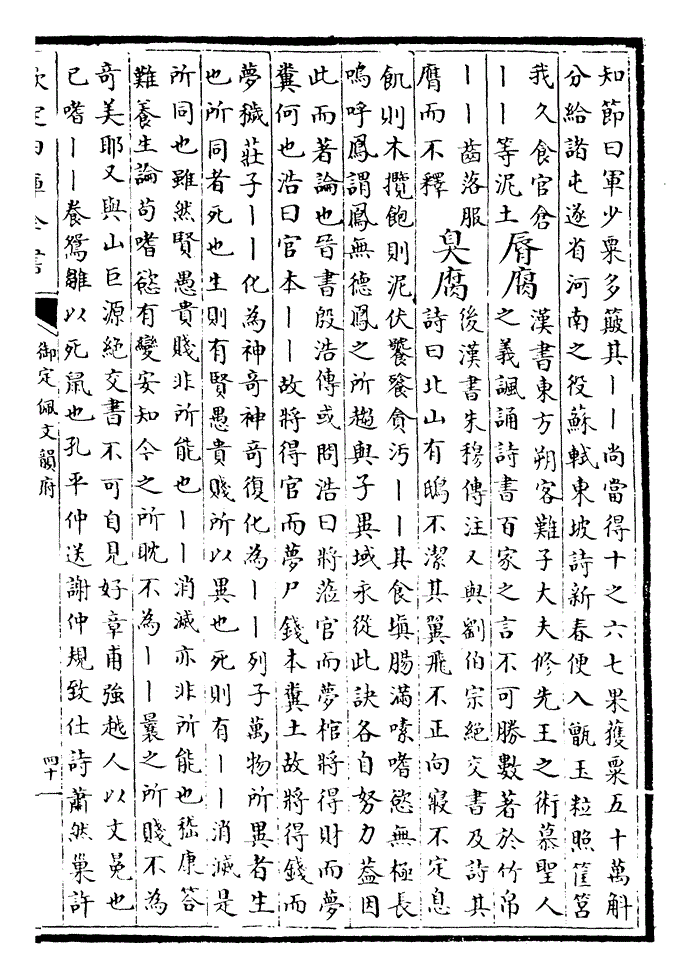 知節曰軍少粟多簸其丨丨尚當得十之六七果獲粟五十萬斛
分給諸屯遂省河南之役蘇軾東坡詩新春便入甑玉粒照筐筥
我久食官倉
丨丨等泥土
脣腐
漢書東方朔客難子大夫修先王之術慕聖人
之義諷誦詩書百家之言不可勝數著於竹帛
丨丨齒落服
膺而不釋
臭腐
後漢書朱穆傳注又與劉伯宗絶交書及詩其
詩曰北山有鴟不潔其翼飛不正向寢不定息
飢則木攬飽則泥伏饕餮貪汚丨丨其食塡腸滿嗉嗜慾無極長
嗚呼鳳謂鳳無德鳳之所趨與子異域永從此訣各自努力蓋因
此而著論也晉書殷浩傳或問浩曰將涖官而夢棺將得財而夢
糞何也浩曰官本丨丨故將得官而夢尸錢本糞土故將得錢而
夢穢莊子丨丨化為神奇神奇復化為丨丨列子萬物所異者生
也所同者死也生則有賢愚貴賤所以異也死則有丨丨消滅是
所同也雖然賢愚貴賤非所能也丨丨消滅亦非所能也嵇康答
難養生論苟嗜慾有變安知今之所耽不為丨丨曩之所賤不為
奇美耶又與山巨源絶交書不可自見好章甫強越人以文冕也
已嗜丨丨養鴛雛以死鼠也孔平仲送謝仲規致仕詩蕭然巢許
欽定四庫全書
御定佩文韻府
四十一